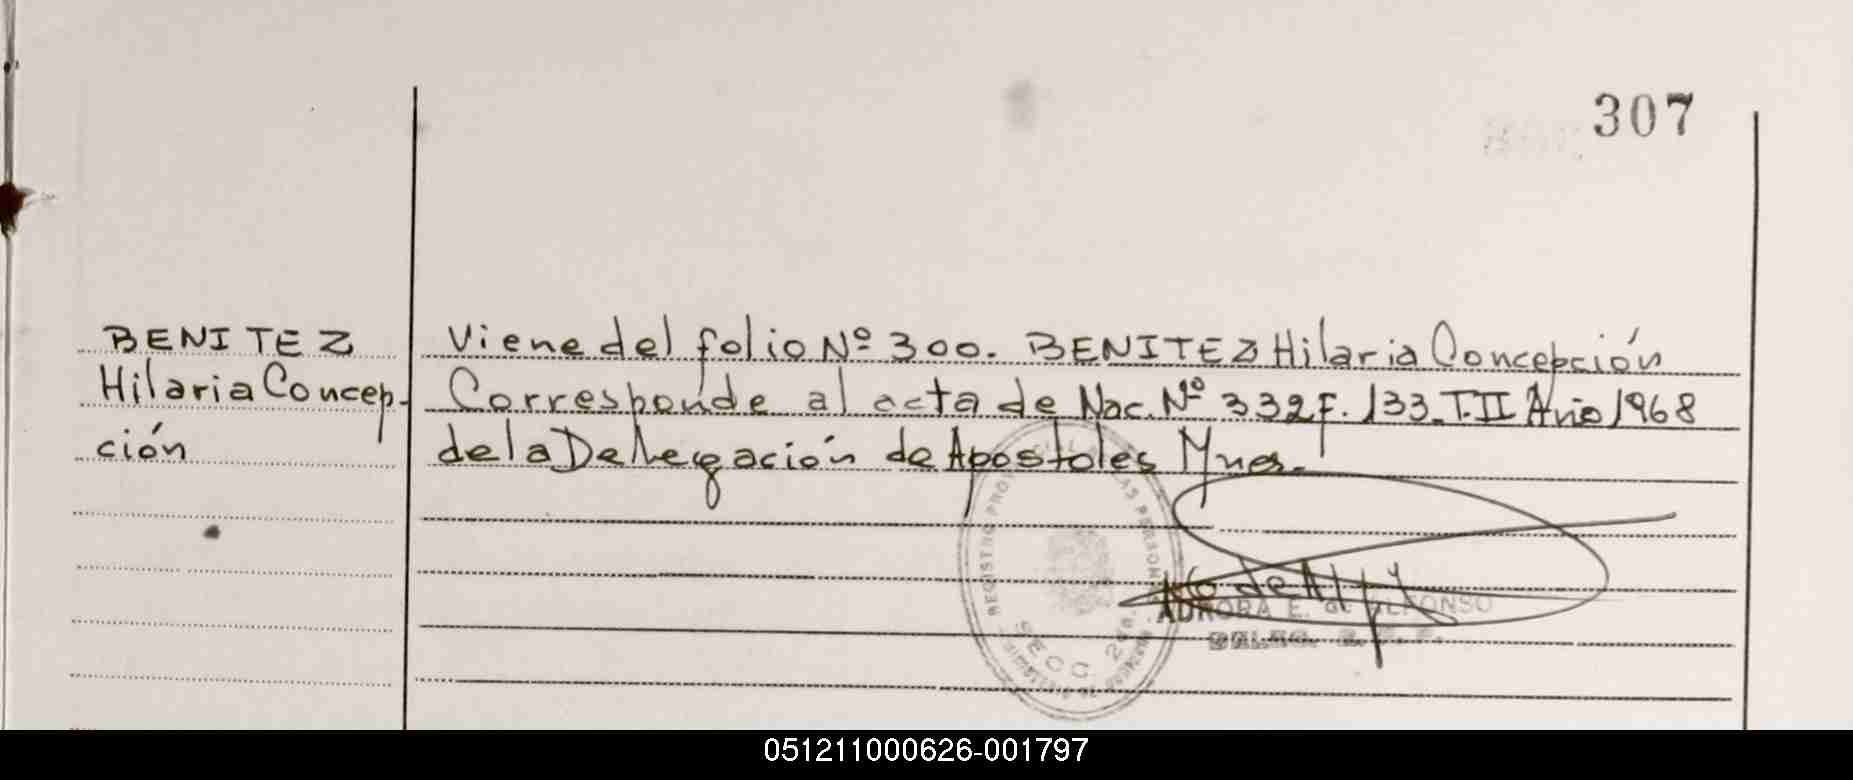 307
BENITEZ
Hilaria Concep-
ción
Viene del folio Nº 300. BENITEZ Hilaria Concepción
Corresponde al acta de Nac. Nº 332 F. 133. T. II Año 1968
de la Delegación de Apóstoles Mnes.
REGISTRO PROVINCIAL LAS PERSONAS
SECC. 2da.
E. G. ALFONSO
051211000626-001797